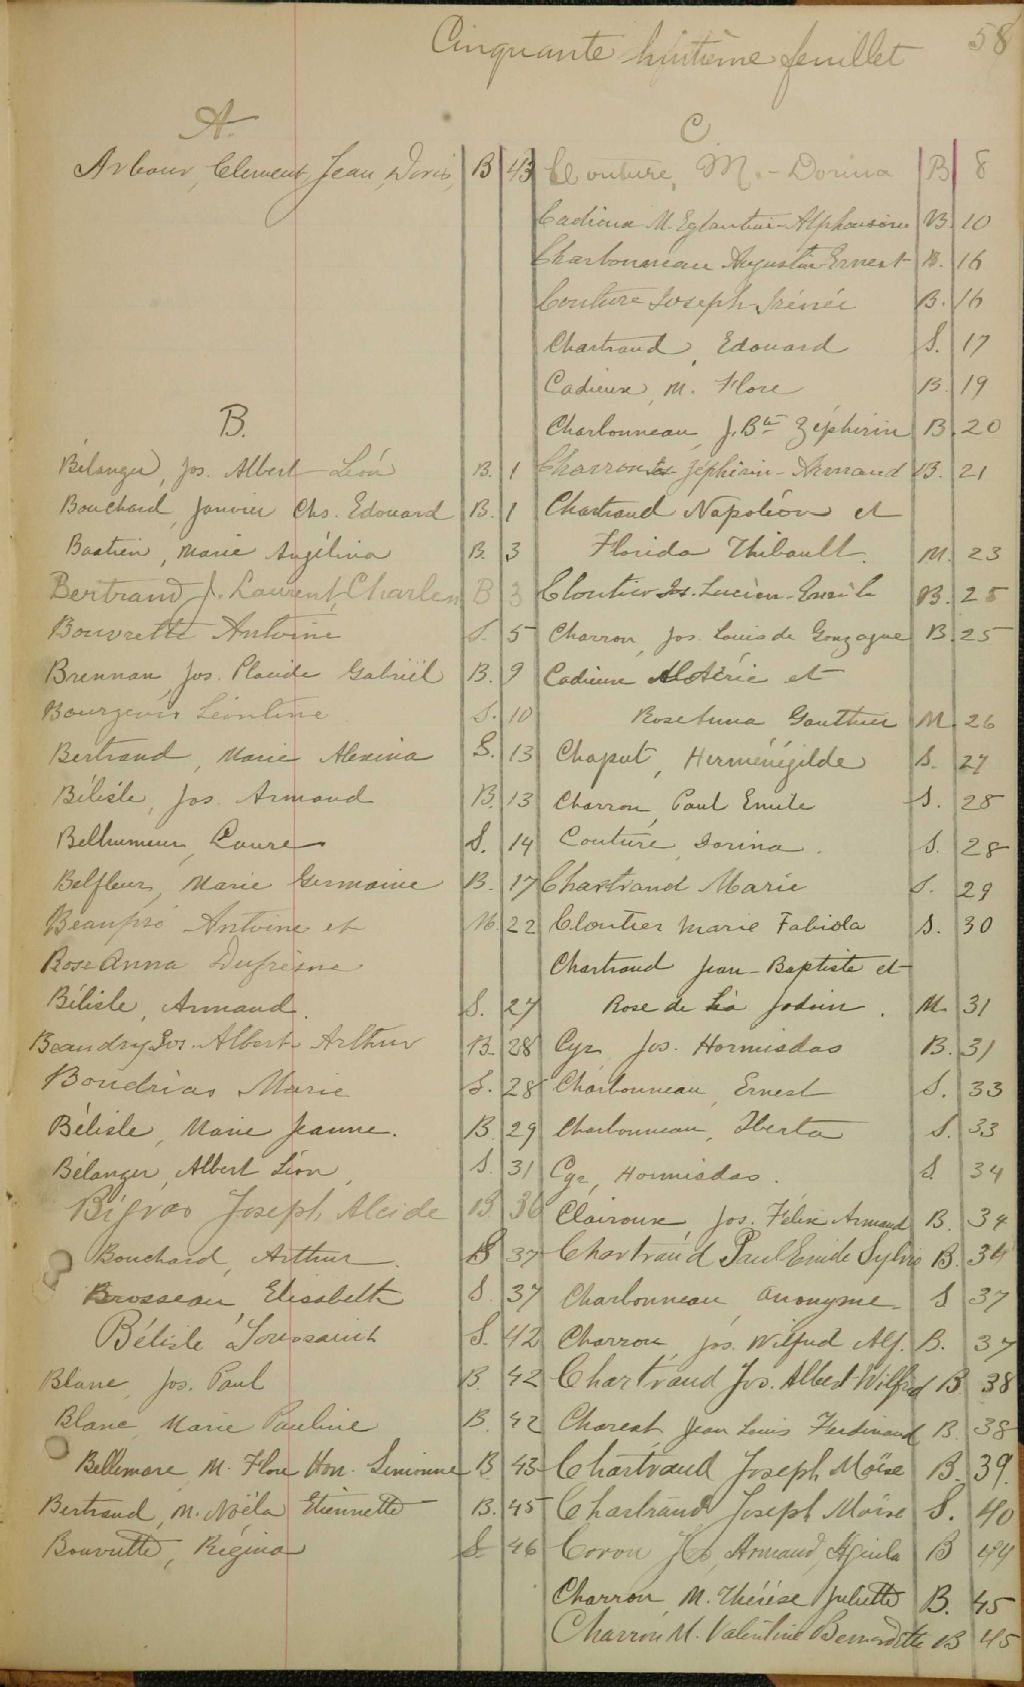 58
Cinquante huitième feuillet
A.
Arbour, Clement, Jean, Doris, B 43
B.
Bélanger, Jos. Albert Léon B. 1
Bouchard, Janvier Chs. Edouard B. 1
Bastien, Marie Angélina B. 3
Bertrand J. Laurent, Charles B 3
Bouvrette Antoine S. 5
Brennan, Jos. Placide Gabriël B. 9
Bourgeois Léontine S. 10
Bertrand, Marie Alexina S. 13
Bélisle, Jos. Armand B. 13
Bellhumeur, Laure S. 14
Belfleur, Marie Germaine B. 17
Beaupré Antoine et M. 22
Rose Anna Dufresne
Bélisle, Armand. S. 27
Beaudry Jos. Albert Arthur B. 28
Boudrias Marie S. 28
Bélisle, Marie Jeanne. B. 29
Bélanger, Albert Léon, S. 31
Bigras Joseph Alcide B 36
Bouchard, Arthur. S 37
Brosseau, Elisabeth S. 37
Bélisle Toussaint S. 42
Blanc, Jos. Paul B. 42
Blanc, Marie Pauline B. 42
Bellemare, M. Flore Hon. Simonne B 43
Bertrand, M. Noëla Etiennette B. 45
Bouvrette, Régina S. 46
C
Couture, M. - Dorina B 8
Cadieux M. Eglantine-Alphonsine B. 10
Charbonneau Augustin Ernest B. 16
Couture Joseph Irénée B. 16
Chartrand, Edouard S. 17
Cadieux, M. Flore B. 19
Charbonneau, J. Bte Zéphirin B. 20
Charron Jos Zéphirin - Armand B. 21
Chartrand Napoléon et
Florida Thibault. M. 23
Cloutier Jos. Lucien-Emile B. 25
Charron, Jos. Louis de Gonzague B. 25
Cadieux Aldéric et
Rose Anna Gauthier M. 26
Chaput, Herménégilde S. 27
Charron, Paul Emile S. 28
Couture, Dorina. S. 28
Chartrand Marie S. 29
Cloutier Marie Fabiola S. 30
Chartrand Jean-Baptiste et
Rose de Lia Jodoin. M. 31
Cyr Jos. Hormisdas B. 31
Charbonneau, Ernest S. 33
Charbonneau, Iberta S. 33
Cyr, Hormisdas. S 34
Clairoux, Jos. Félix Armand B. 34
Chartrand Paul Emile Sylvio B. 34
Charbonneau anonyme S 37
Charron, Jos. Wilfrid Alf. B. 37
Chartrand Jos. Albert Wilfrid B 38
Charest Jean Louis Ferdinand B. 38
Chartrand Joseph Moïse B. 39.
Chartrand Joseph Moïse S. 40
Coron Armand B 44
Charron, M. Thérèse Juliette B. 45
Charron M. Valentine Bernadette B 45